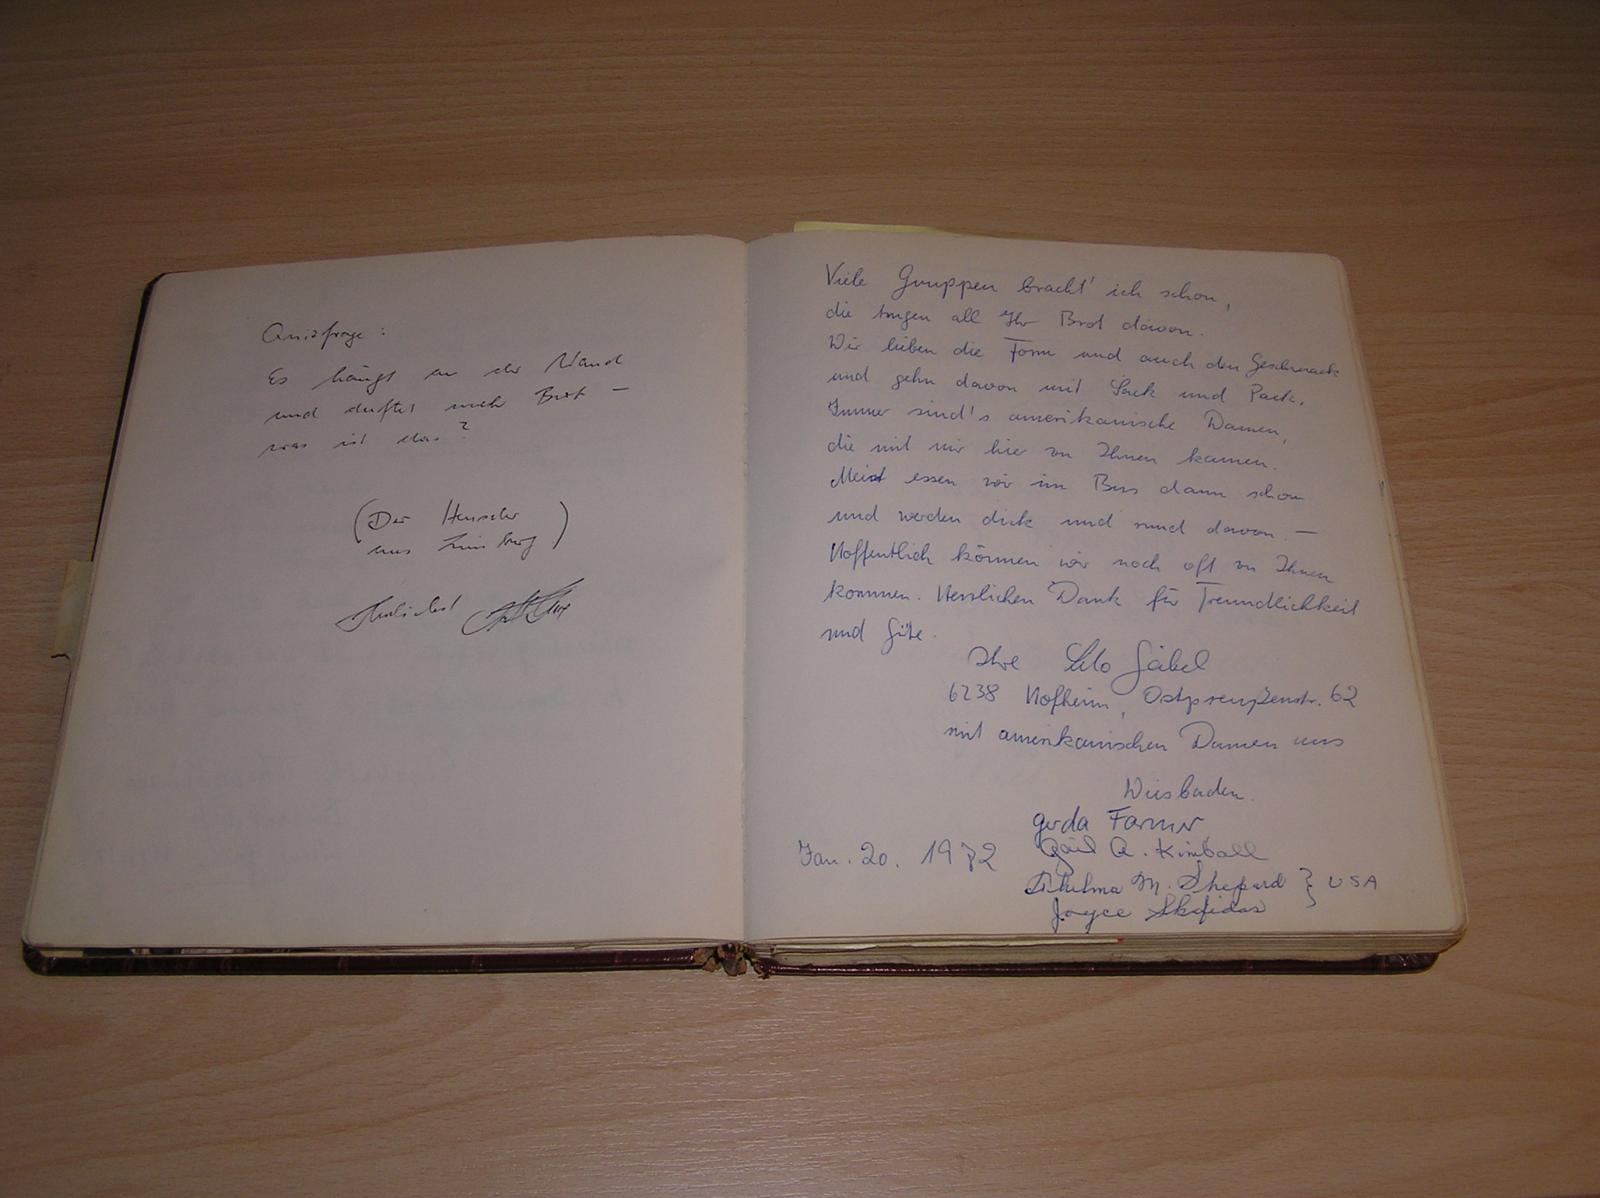 Quizfrage:
Es hängt an der Wand
und duftet nach Brot –
was ist das?
(Der Hensler
aus Limburg)
Herlichst
Viele Gruppen bracht' ich schon,
die trugen all Ihr Brot davon.
Wir lieben die Form und auch den Geschmack
und gehn davon mit Sack und Pack.
Immer sind's amerikanische Damen,
die mit mir hier zu Ihnen kamen.
Meist essen wir im Bus dann schon
und werden dick und rund davon. –
Hoffentlich können wir noch oft zu Ihnen
kommen. Herzlichen Dank für Freundlichkeit
und Güte.
Ihre Lilo Gäbel
6238 Hofheim, Ostpreußenstr. 62
mit amerikanischen Damen aus
Wiesbaden.
Gerda Farmer
Jan. 20. 1982 Gail A. Kimball
Thelma M. Shepard } USA
Joyce